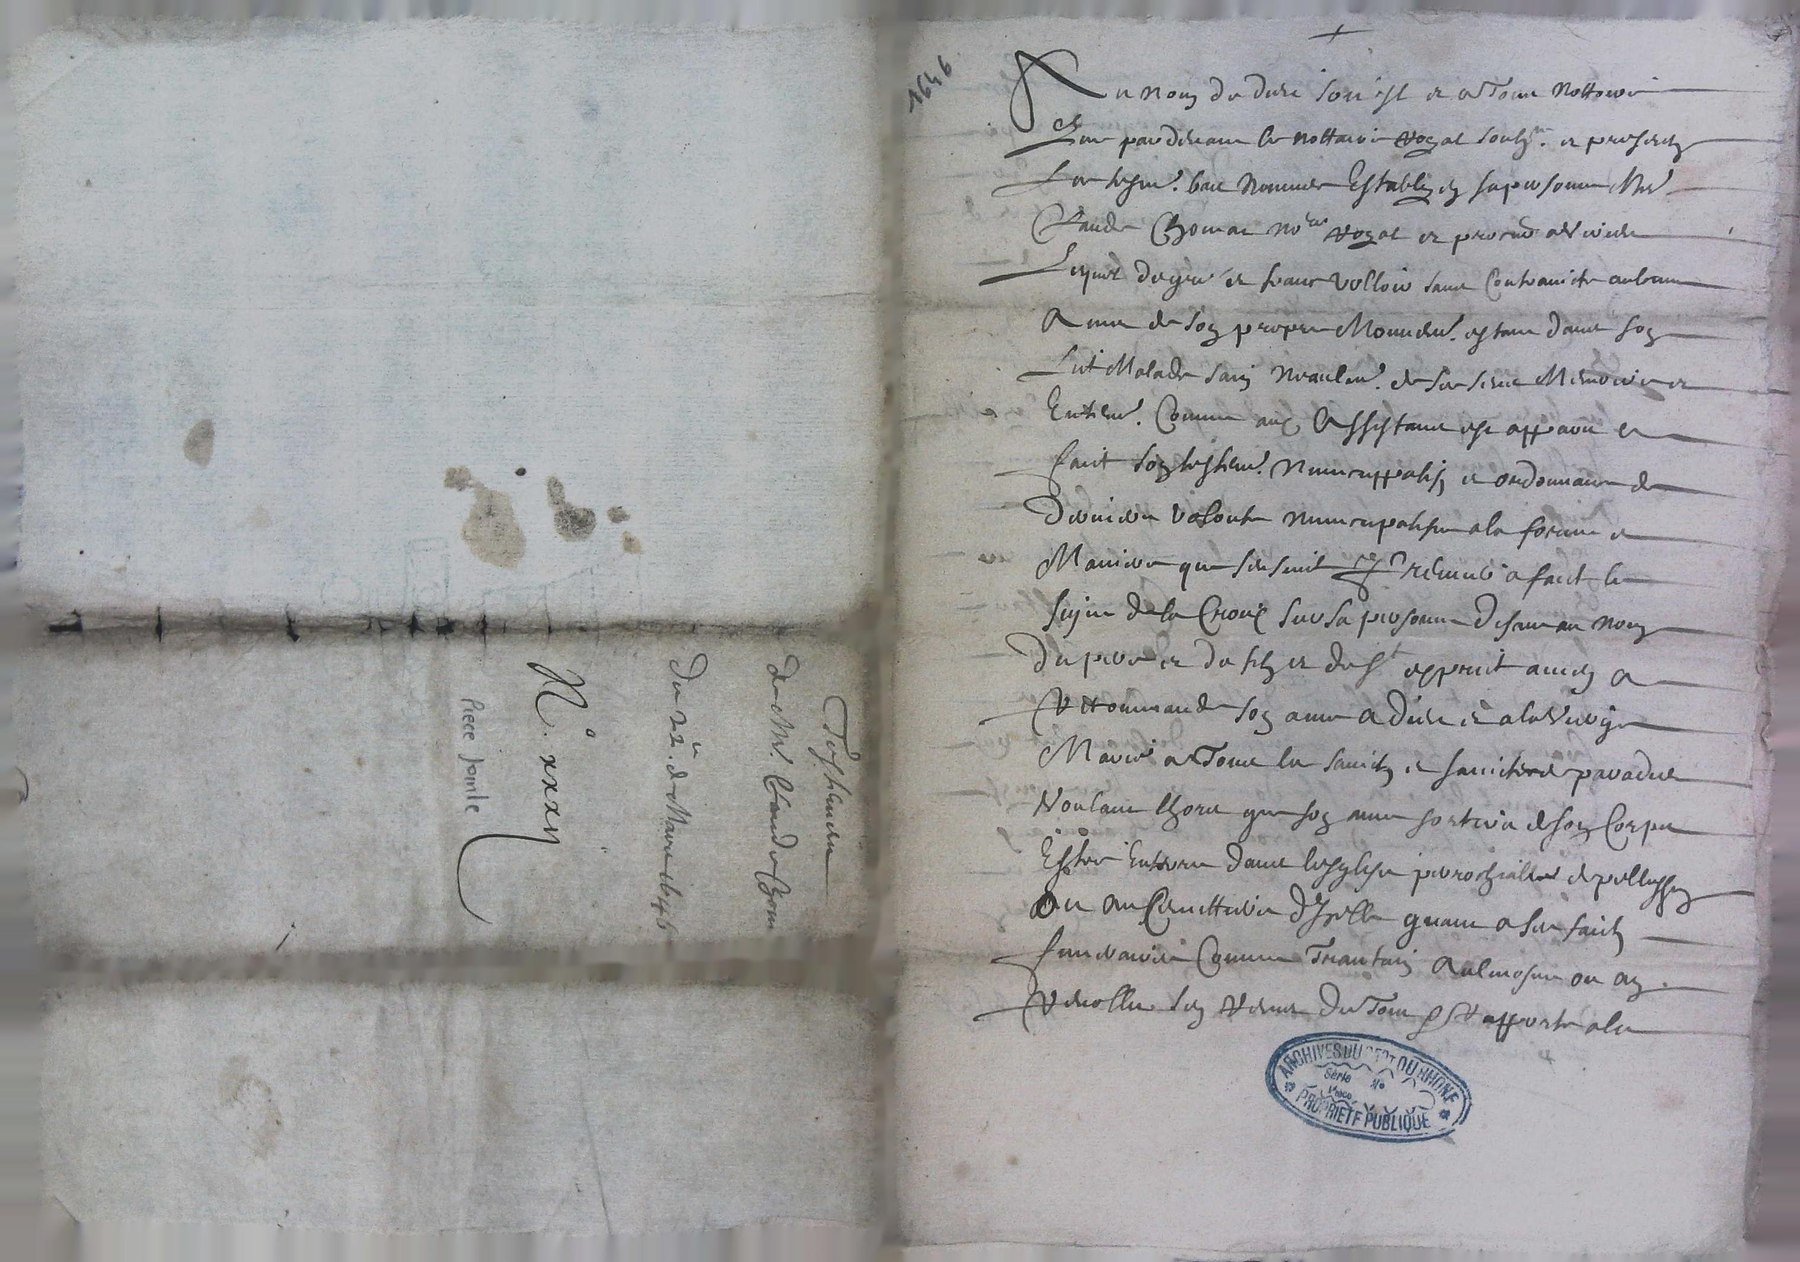 Testament
de Mr. Claude Chom
du 22e. de Mars 1646
N.° xxxij
Piece jointe
1646
Au nom de dieu soit et a Tous Nottoire
que pardevant le nottaire Royal soubz.né et presentz
les tesmi. bas nommés Establi en sa personne Me
Claude Chomat nore Royal et procur a Riviere
Lequel de gre et franc volloir sans Contrainte aulcune
Ains de son propre Mouvemt. estant dans son
Lict Malade sain neaulmt. de ses sens Memoire et
Entenmt. Comme aux Assistans est apparu a
faict son testemt. nuncuppatif et ordonnance de
derniere volonte nuncupatifve a la forme et
Maniere que s'ensuit premier a faict le
signe de la Croix sur sa personne disant au nom
du pere et du filz et du St esprit amen a
Recommande son ame a dieu et a la Vierge
Marie a Tous les sainctz et sainctes de paradis
Voulant lhors que son ame sortira de son Corps
Estre Enterre dans lesglise parochialle de pellussin
Ou au Cimettiere d'Icelle quant a ses faictz
funeraires Comme Trantain Aulmosne ou an
Revollu s'en Remet du Tout et Rapporte a la
ARCHIVES DU DEPT DU RHONE
Série No
PROPRIETE PUBLIQUE